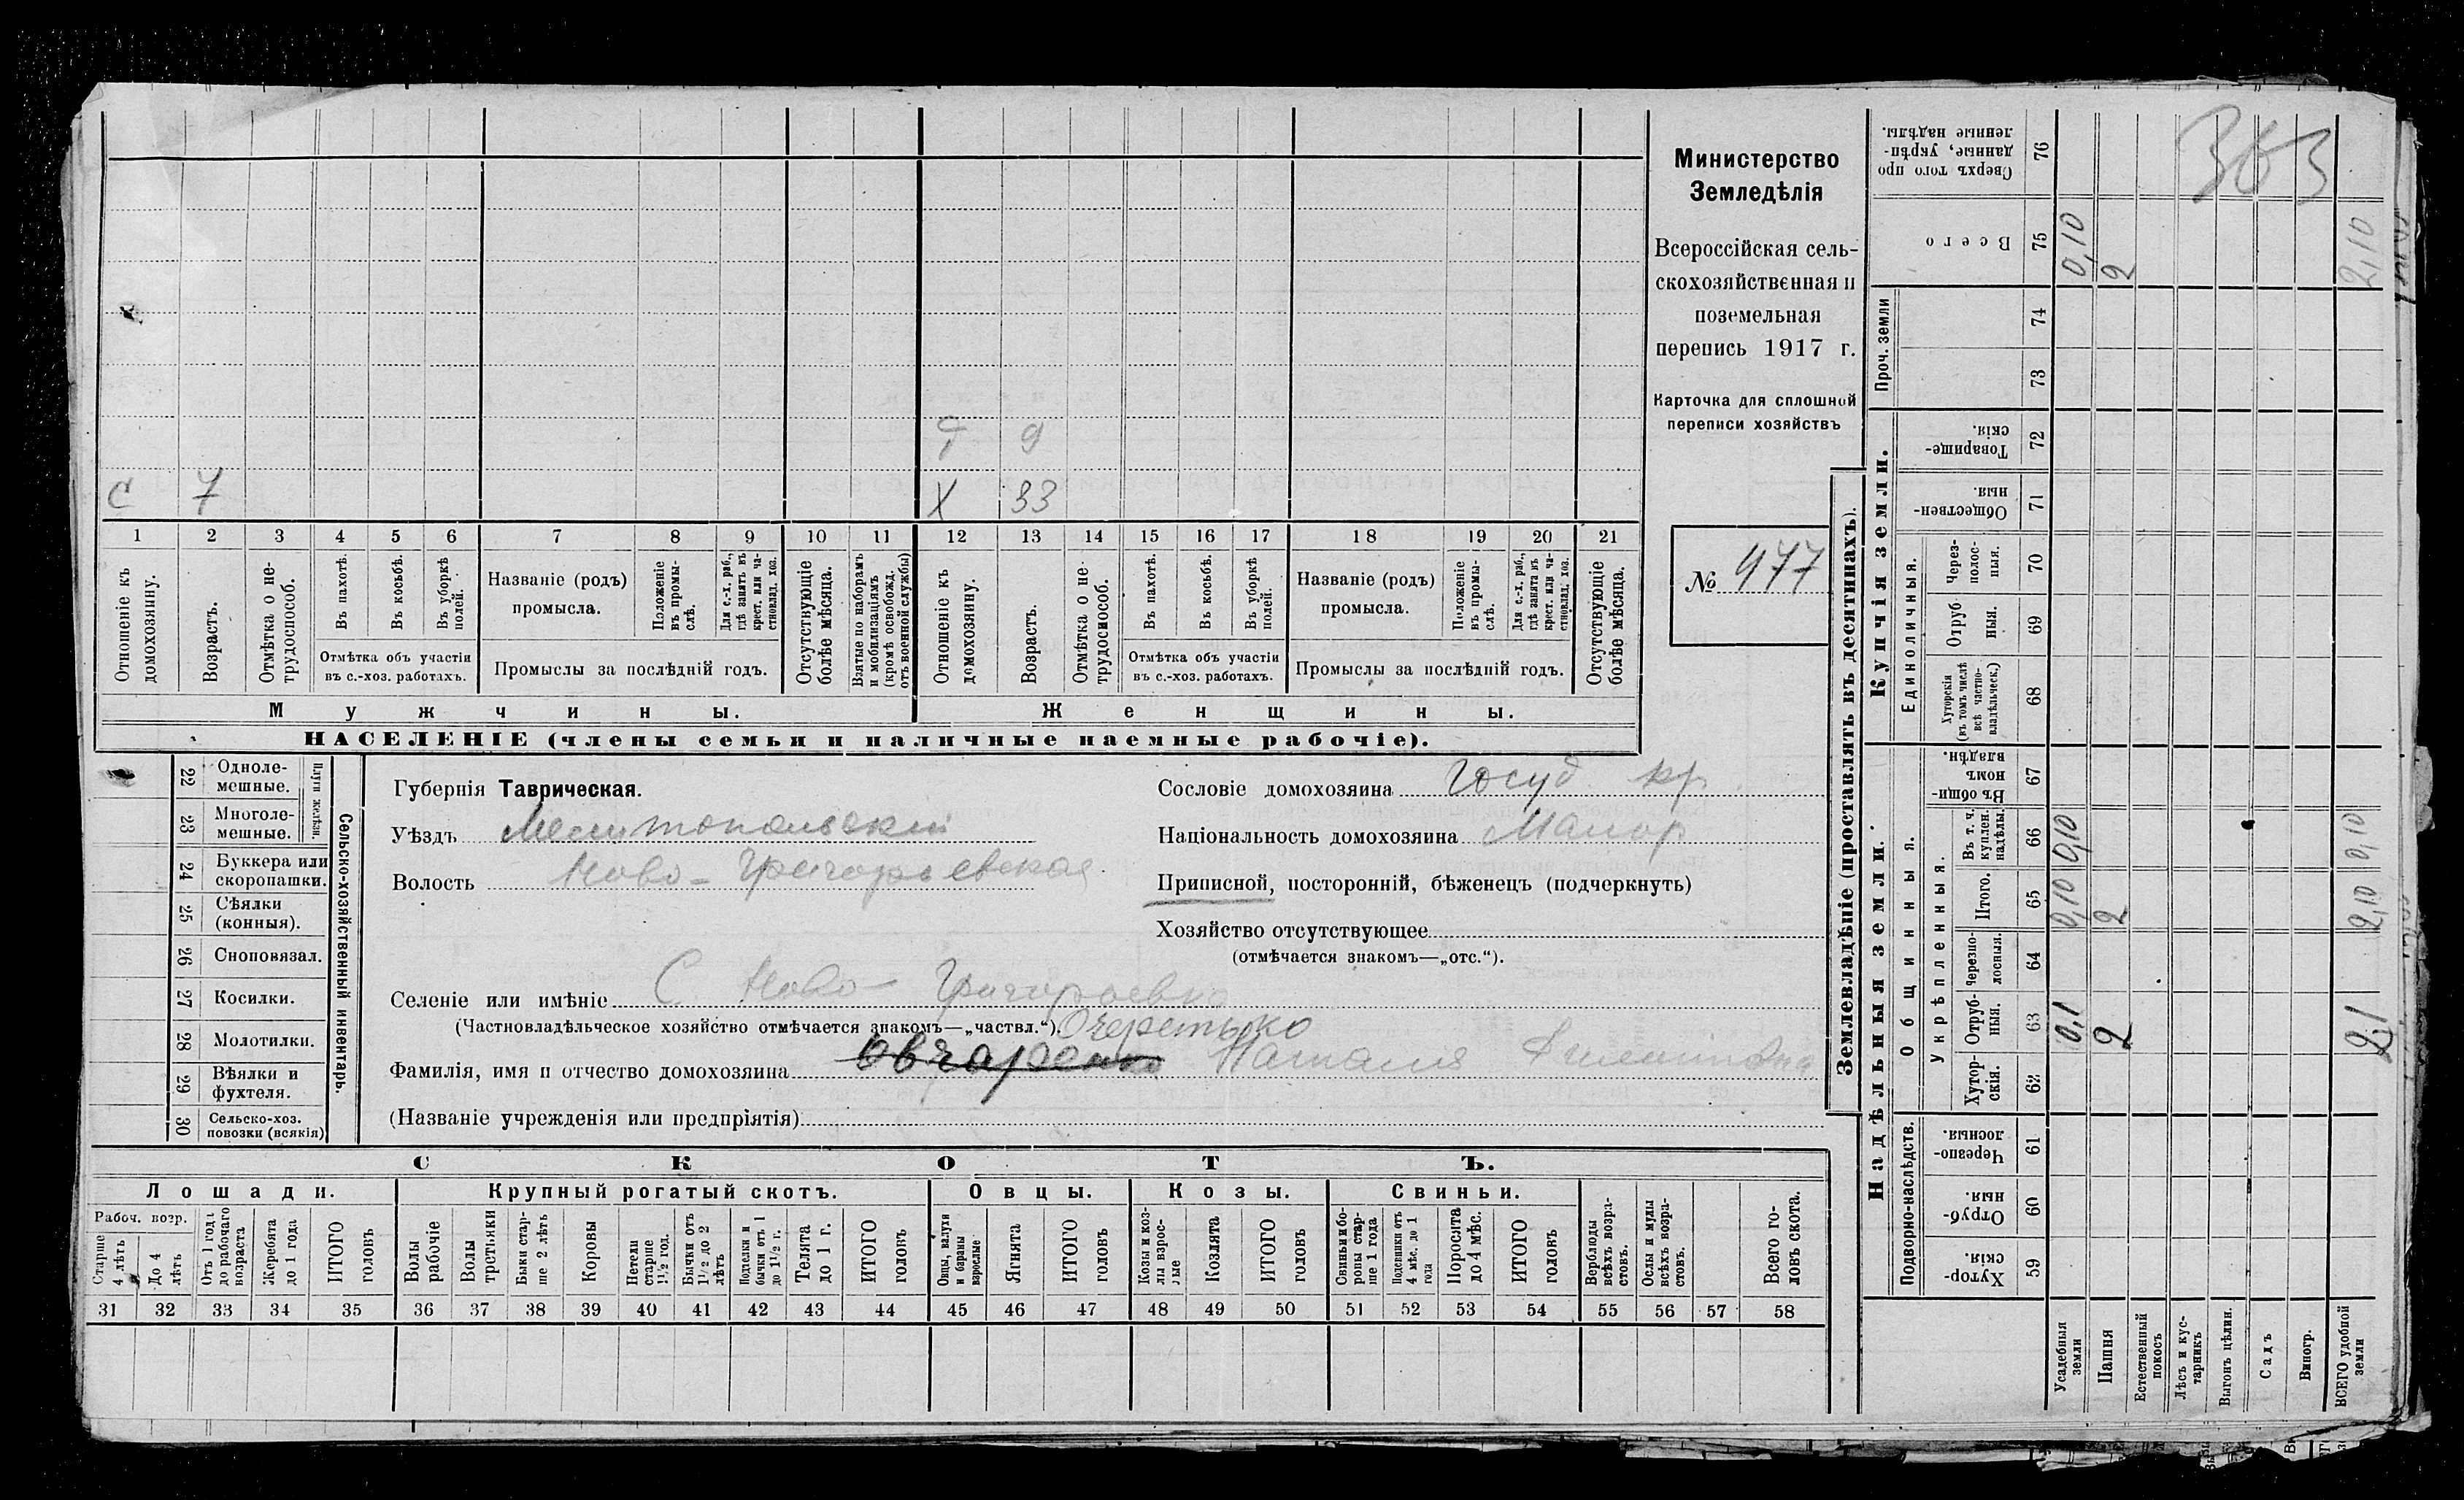 С 7
Т 9
Х 33
1 2 3 4 5 6 7 8 9 10 11 12 13 14 15 16 17 18 19 20 21
Отношеніе къ домохозяину.
Возрастъ.
Отмѣтка о нетрудоспособ.
Въ пахотѣ.
Въ косьбѣ.
Въ уборкѣ полей.
Отмѣтка объ участіи
въ с.-хоз. работахъ.
Названіе (родъ)
промысла.
Положеніе въ промыслѣ.
Для с.-х. раб., гдѣ занятъ въ крест. или частновлад. хоз.
Промыслы за послѣдній годъ.
Отсутствующіе болѣе мѣсяца.
Взятые по наборамъ и мобилизаціямъ (кромѣ освобожд. отъ военной службы)
Отношеніе къ домохозяину.
Возрастъ.
Отмѣтка о нетрудоспособ.
Въ пахотѣ.
Въ косьбѣ.
Въ уборкѣ полей.
Отмѣтка объ участіи
въ с.-хоз. работахъ.
Названіе (родъ)
промысла.
Положеніе въ промыслѣ.
Для с.-х. раб., гдѣ занята въ крест. или частновлад. хоз.
Промыслы за послѣдній годъ.
Отсутствующіе болѣе мѣсяца.
Мужчины.
Женщины.
НАСЕЛЕНІЕ (члены семьи и наличные наемные рабочіе).
Министерство
Земледѣлія
Всероссійская сель-
скохозяйственная и
поземельная
перепись 1917 г.
Карточка для сплошной
переписи хозяйствъ
№ 477
22 Одноле-
мешные.
23 Многоле-
мешные.
Плуги желѣзн.
24 Буккера или
скоропашки.
25 Сѣялки
(конныя).
26 Сноповязал.
27 Косилки.
28 Молотилки.
29 Вѣялки и
фухтеля.
30 Сельско-хоз.
повозки (всякія)
Сельско-хозяйственный инвентарь.
Губернія Таврическая.
Уѣздъ Мелитопольскій
Волость Ново-Григорьевская
Сословіе домохозяина Госуд кр
Національность домохозяина Малор
Приписной, посторонній, бѣженецъ (подчеркнуть)
Хозяйство отсутствующее
(отмѣчается знакомъ—„отс.“).
Селеніе или имѣніе С Ново-Григорьевка
(Частновладѣльческое хозяйство отмѣчается знакомъ—„частвл.“).
Фамилія, имя и отчество домохозяина Овчаренко Наталия
(Названіе учрежденія или предпріятія)
СКОТЪ.
Лошади. Крупный рогатый скотъ. Овцы. Козы. Свиньи.
Рабоч. возр.
Старше 4 лѣтъ
До 4 лѣтъ
Отъ 1 года до рабочаго возраста
Жеребята до 1 года
ИТОГО головъ
Волы рабочіе
Волы третьяки
Быки старше 2 лѣтъ
Коровы
Нетели старше 1½ год.
Бычки отъ 1½ до 2 лѣтъ
Подтелки и бычки отъ 1 до 1½ г.
Телята до 1 г.
ИТОГО головъ
Овцы, валухи и бараны взрослые
Ягнята
ИТОГО головъ
Козы и козлы взрослые
Козлята
ИТОГО головъ
Свиньи и боровы старше 1 года
Подсвинки отъ 4 мѣс. до 1 года
Поросята до 4 мѣс.
ИТОГО головъ
Верблюды всѣхъ возрастовъ.
Ослы и мулы всѣхъ возрастовъ.
Всего головъ скота.
31 32 33 34 35 36 37 38 39 40 41 42 43 44 45 46 47 48 49 50 51 52 53 54 55 56 57 58
Землевладѣніе (проставлять въ десятинахъ).
363
Сверхъ того проданные, укрѣпленные надѣлы. 76
Всего 75 0,10 2 2,10
Проч. земли 74
73
Купчія земли.
Товарищескія. 72
Общественныя. 71
Единоличныя.
Черезполосныя. 70
Отрубныя. 69
Хуторскія (въ томъ числѣ всѣ частновладѣльческ.) 68
Надѣльныя земли.
Общинныя.
Въ общинномъ владѣн. 67
Укрѣпленныя.
Въ т. ч. куплен. надѣлы. 66 0,10 0,10
Итого. 65 0,10 2 2,10
Черезполосныя. 64
Отрубныя. 63 0,1 2 2,1
Хуторскія. 62
Подворно-наслѣдств.
Черезполосныя. 61
Отрубныя. 60
Хуторскія. 59
Усадебныя земли
Пашня
Естественный покосъ
Лѣсъ и кустарникъ
Выгонъ цѣлин.
Садъ
Виногр.
ВСЕГО удобной земли